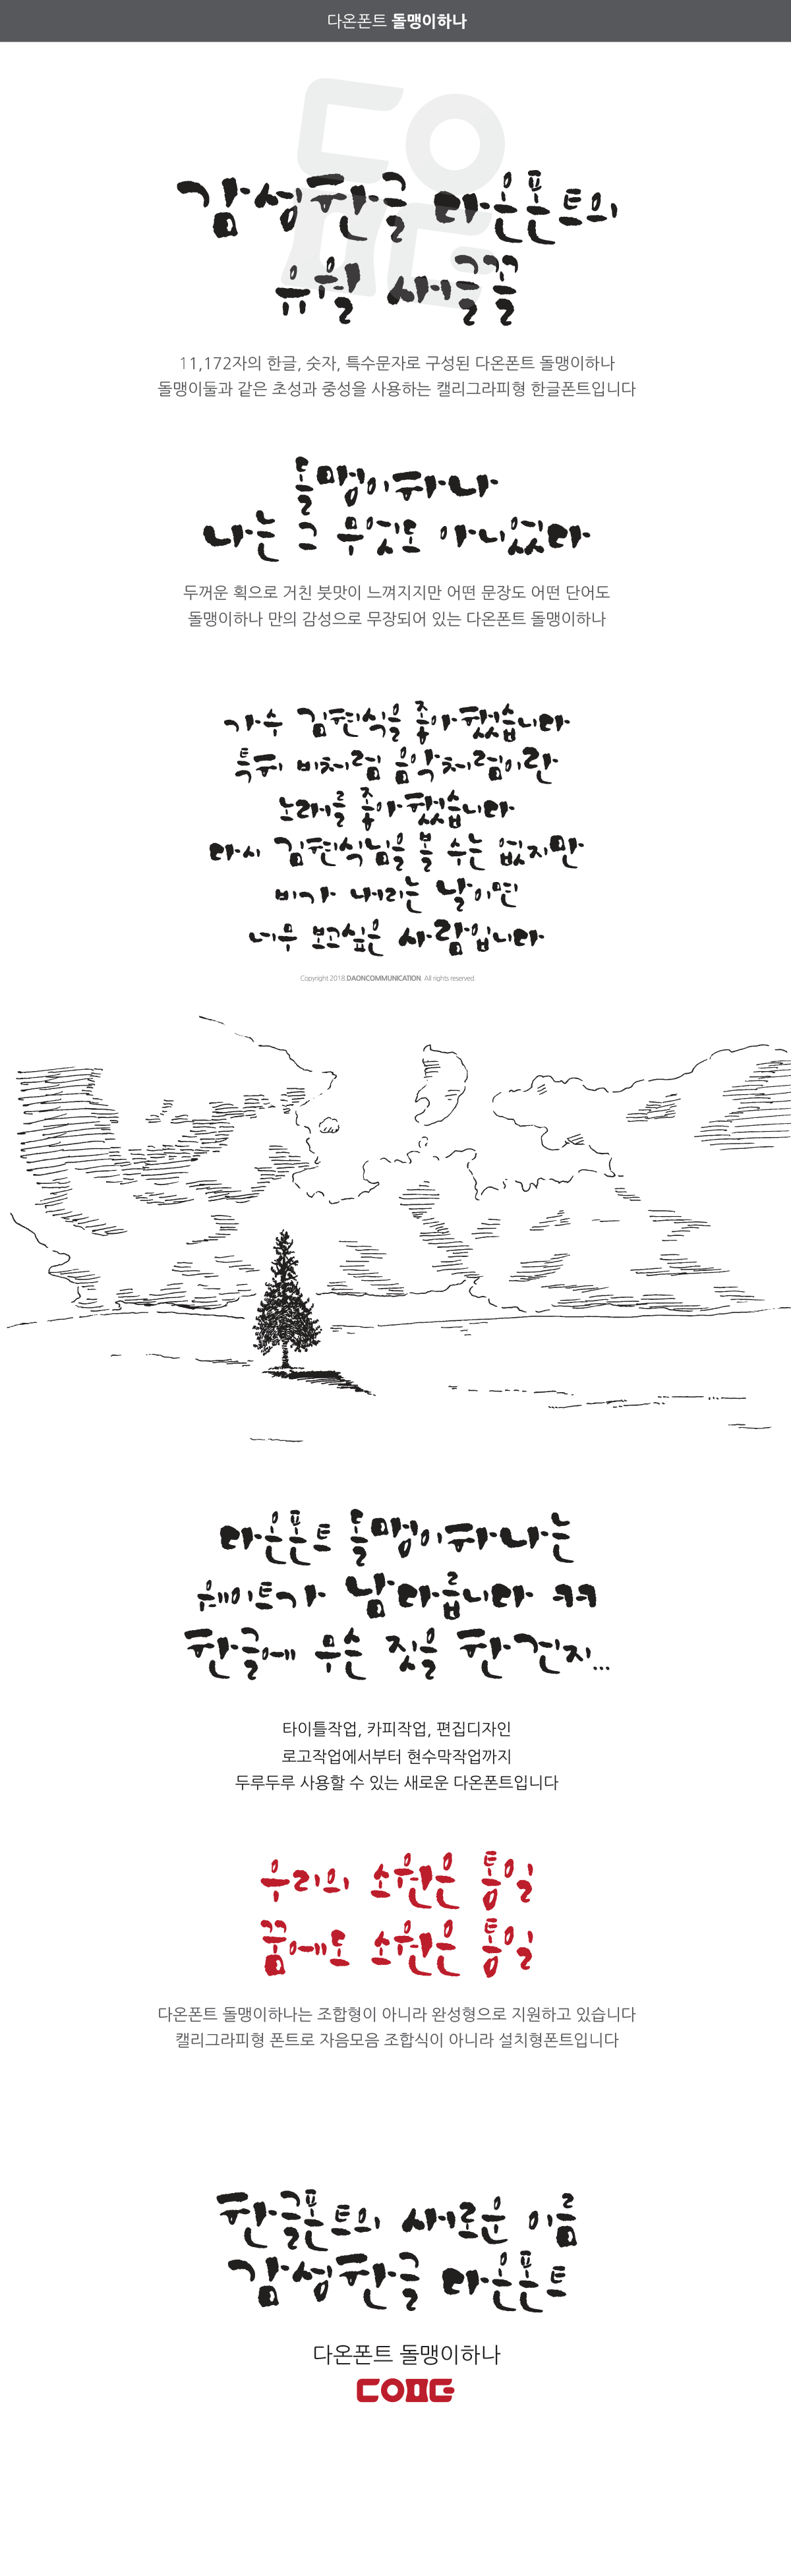 다온폰트 돌맹이하나
감성한글 다온폰트의
유월 새글꼴
11,172자의 한글, 숫자, 특수문자로 구성된 다온폰트 돌맹이하나
돌맹이둘과 같은 초성과 중성을 사용하는 캘리그라피형 한글폰트입니다
돌맹이하나
나는 그 무엇도 아니었다
두꺼운 획으로 거친 붓맛이 느껴지지만 어떤 문장도 어떤 단어도
돌맹이하나 만의 감성으로 무장되어 있는 다온폰트 돌맹이하나
가수 김현식을 좋아했습니다
특히 비처럼 음악처럼이란
노래를 좋아했습니다
다시 김현식님을 볼 수는 없지만
비가 내리는 날이면
너무 보고싶은 사람입니다
Copyright 2018 DAONCOMMUNICATION. All rights reserved.
다온폰트 돌맹이하나는
웨이트가 남다릅니다 ㅋㅋ
한글에 무슨 짓을 한건지...
타이틀작업, 카피작업, 편집디자인
로고작업에서부터 현수막작업까지
두루두루 사용할 수 있는 새로운 다온폰트입니다
우리의 소원은 통일
꿈에도 소원은 통일
다온폰트 돌맹이하나는 조합형이 아니라 완성형으로 지원하고 있습니다
캘리그라피형 폰트로 자음모음 조합식이 아니라 설치형폰트입니다
한글폰트의 새로운 이름
감성한글 다온폰트
다온폰트 돌맹이하나